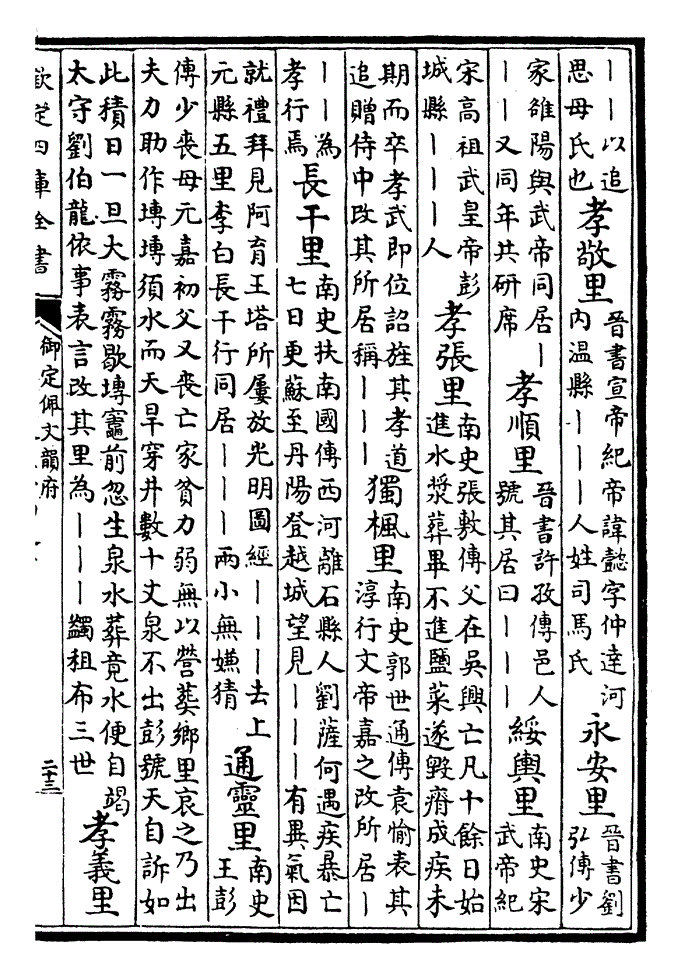 丨丨以追思母氏也孝敬里晉書宣帝紀帝諱懿字仲達河内温縣丨丨丨人姓司馬氏永安里晉書劉弘傳少
家雒陽與武帝同居丨丨丨又同年共研席孝順里晉書許孜傳邑人號其居曰丨丨丨綏輿里南史宋武帝紀
宋高祖武皇帝彭城縣丨丨丨人孝張里南史張敷傳父在吳興亡凡十餘日始進水漿葬畢不進鹽菜遂毀瘠成疾未
期而卒孝武即位詔旌其孝道追贈侍中改其所居稱丨丨丨獨楓里南史郭世通傳袁愉表其淳行文帝嘉之改所居丨
丨丨為孝行焉長干里南史扶南國傳西河離石縣人劉薩何遇疾暴亡七日更蘇至丹陽登越城望見丨丨丨有異氣因
就禮拜見阿育王塔所屢放光明圖經丨丨丨去上元縣五里李白長干行同居丨丨丨兩小無嫌猜通靈里南史王彭
傳少喪母元嘉初父又喪亡家貧力弱無以營葬鄉里哀之乃出夫力助作塼塼須水而天旱穿井數十丈泉不出彭號天自訴如
此積日一旦大霧霧歇塼竈前忽生泉水葬竟水便自竭太守劉伯龍依事表言改其里為丨丨丨蠲租布三世孝義里
欽定四庫全書 御定佩文韻府 二十三